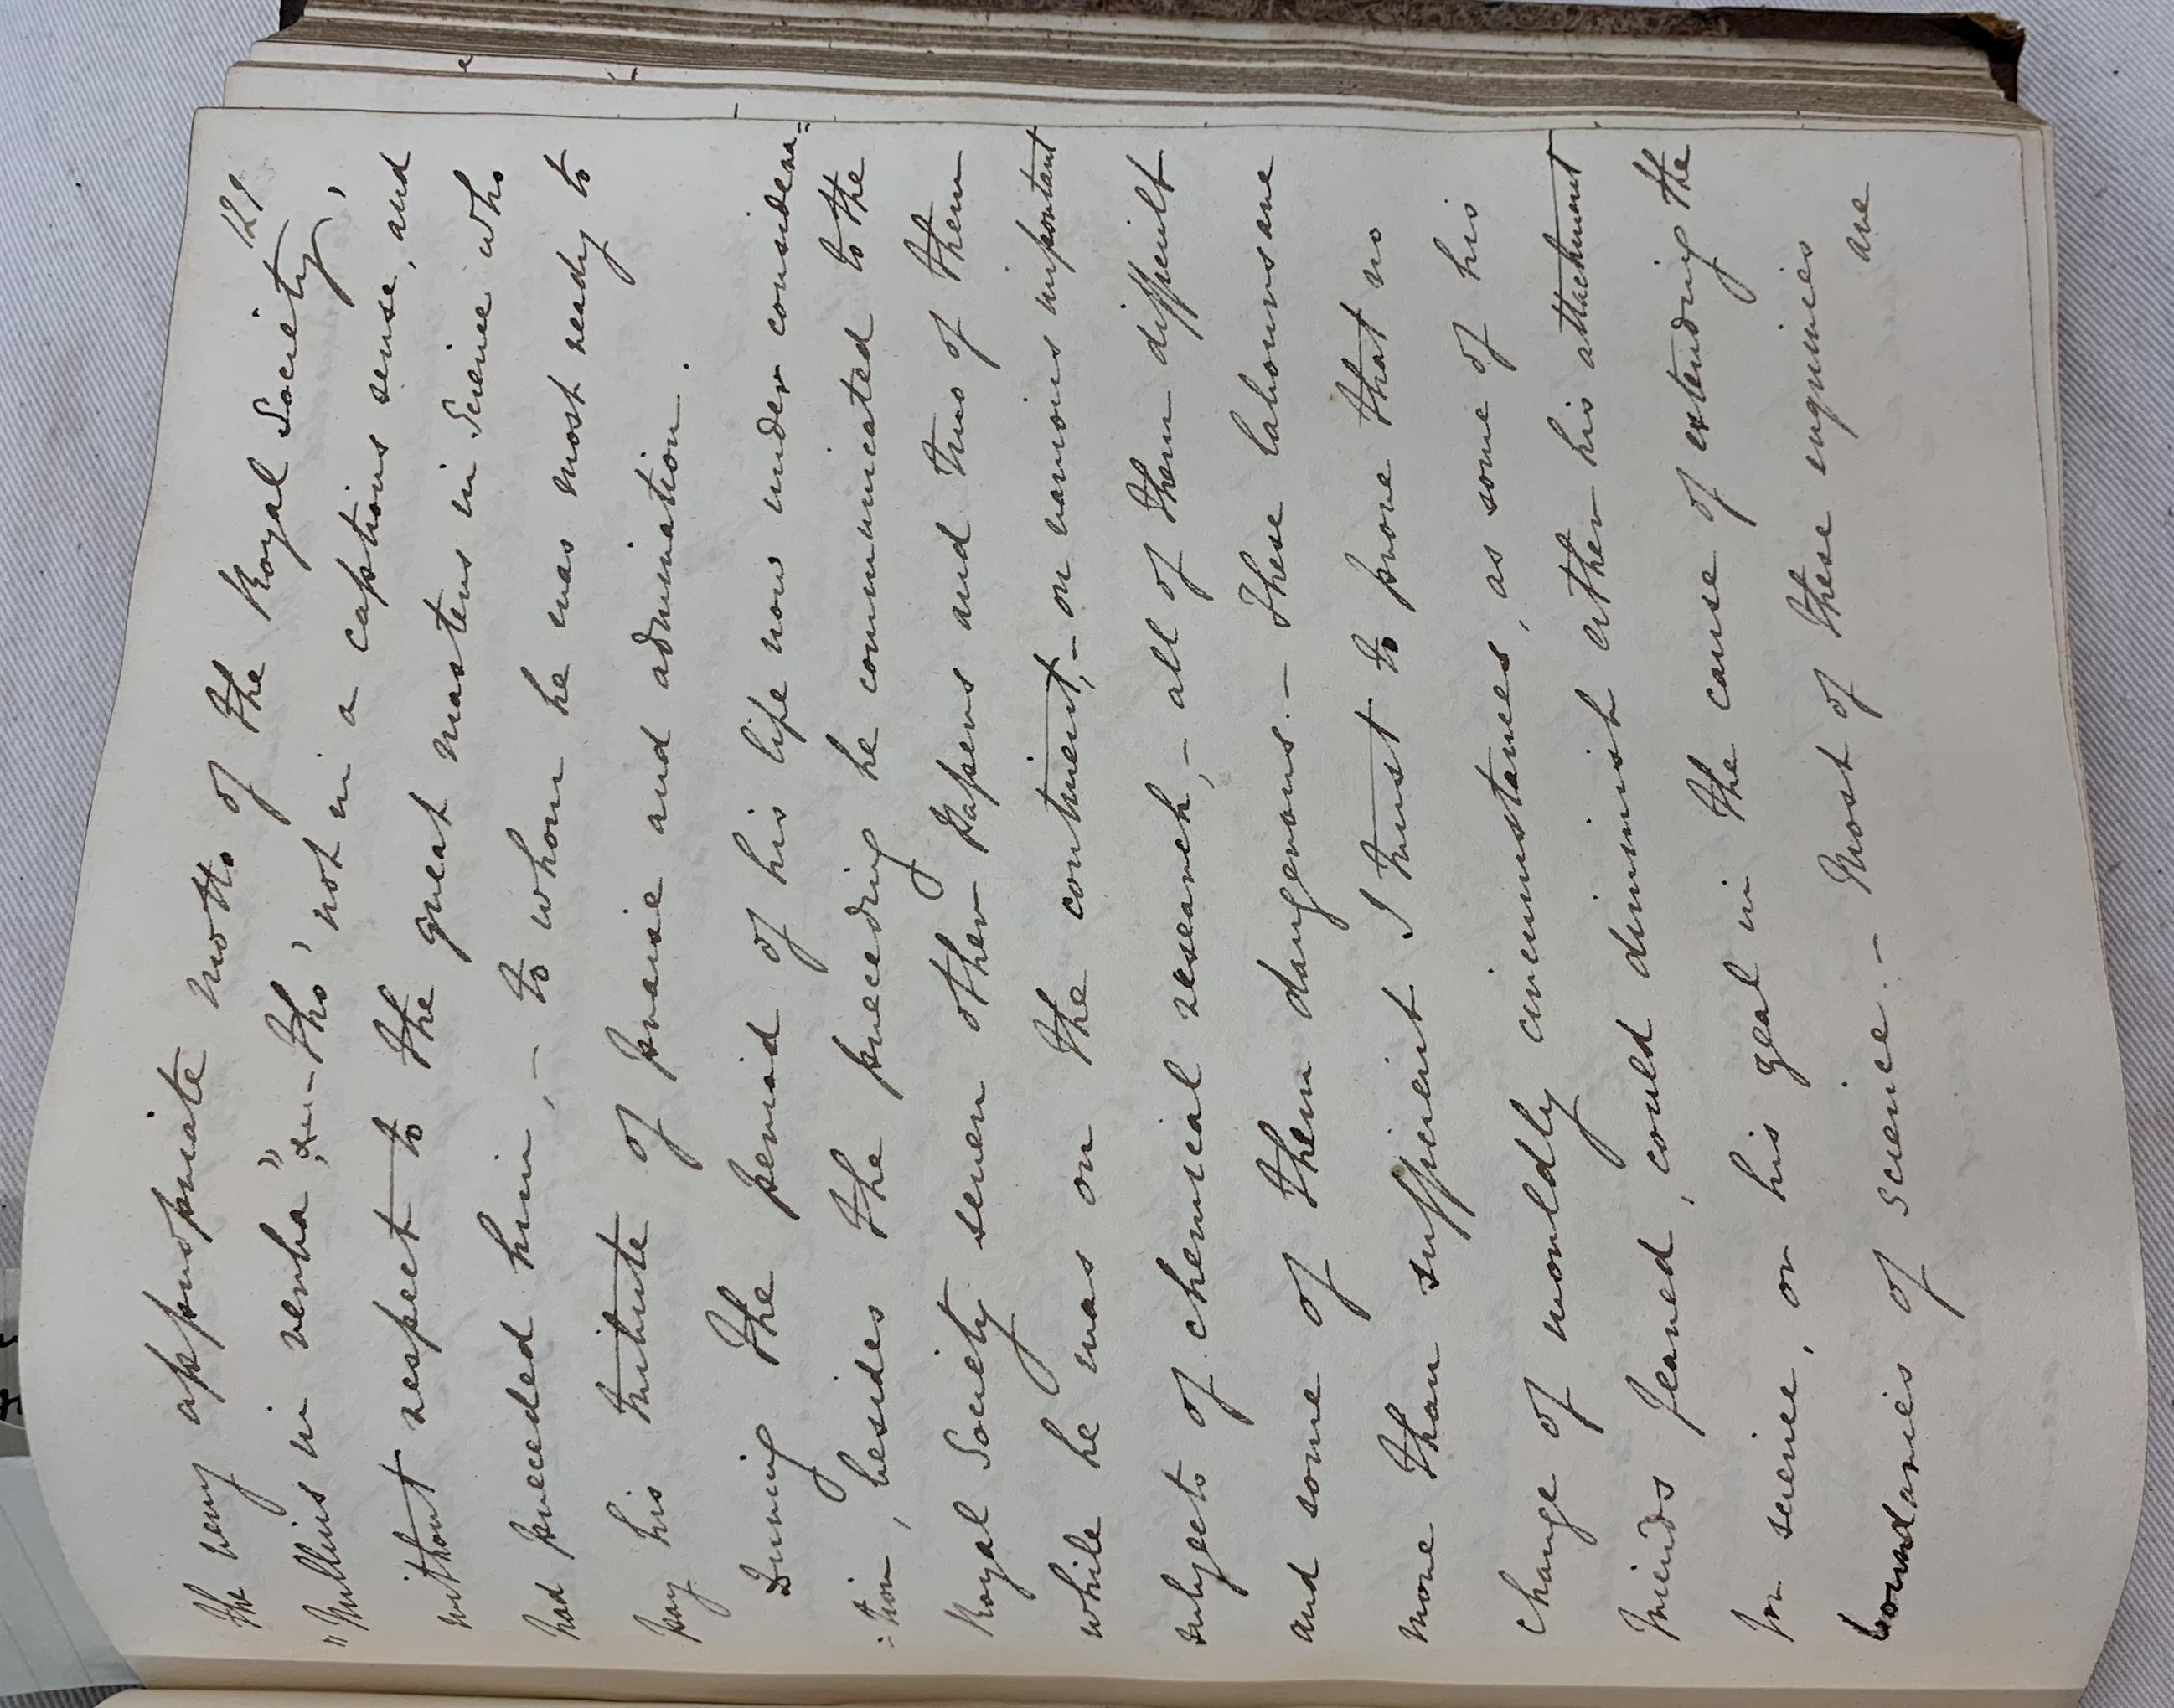 129
the very appropriate motto of the Royal Society,
"Nullius in verba", &c - tho' not in a captious sense, and
without respect to the great masters in Science who
had preceded him, - to whom he was most ready to
pay his tribute of praise and admiration.
During the period of his life now under considera=
=tion, besides the preceding he communicated to the
Royal Society seven other Papers and two of them
while he was on the continent, - on various important
subjects of chemical research, - all of them difficult
and some of them dangerous. - These labours are
more than sufficient I trust to prove that no
change of worldly circumstances, as some of his
friends feared, could diminish either his attachment
to science, or his zeal in the cause of extending the
boundaries of science. - Most of these enquiries are